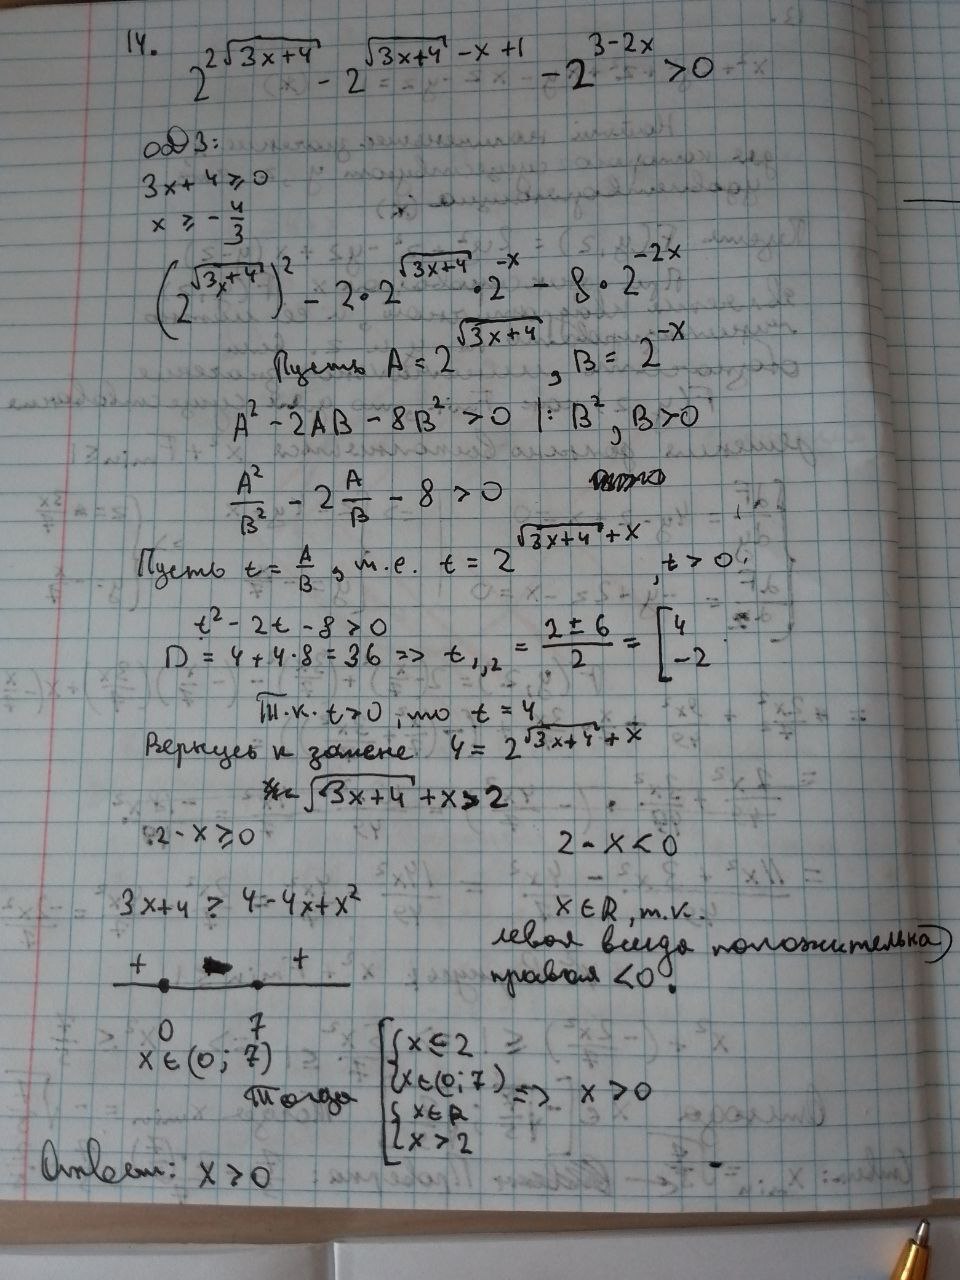 14.
2^{2√(3x+4)} - 2^{√(3x+4) - x + 1} - 2^{3-2x} > 0
ОДЗ:
3x+4 ≥ 0
x ≥ -4/3
(2^{√(3x+4)})^2 - 2•2^{√(3x+4)} •2^{-x} - 8•2^{-2x}
Пусть A = 2^{√(3x+4)}, B = 2^{-x}
A^2 - 2AB - 8B^2 > 0 |: B^2, B>0
A^2/B^2 - 2 A/B - 8 > 0
Пусть t = A/B, т.е. t = 2^{√(3x+4) + x}, t > 0
t^2 - 2t - 8 > 0
D = 4 + 4·8 = 36 => t_{1,2} = (2 ± 6)/2 = [4
-2
Т.к. t>0, то t = 4
Вернусь к замене 4 = 2^{√(3x+4) + x}
√(3x+4) + x > 2
2 - x ≥ 0
2 - x < 0
3x+4 ≥ 4 - 4x + x^2
x ∈ R, т.к.
левая всегда положительна,
правая < 0.
+ +
0 7
x ∈ (0; 7)
Тогда
{x ≤ 2
{x ∈ (0; 7) => x > 0
{x ∈ R
{x > 2
Ответ: x > 0